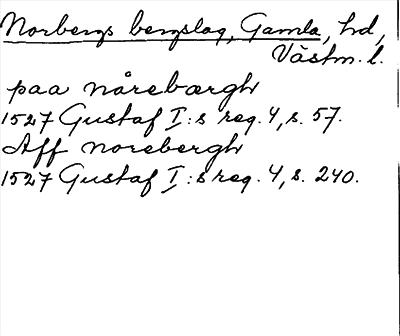 Norbergs bergslag, Gamla, hd,
Västm. l.
paa nårebærgh
1527 Gustaf I:s reg. 4, s. 57.
Aff norebergh
1527 Gustaf I:s reg. 4, s. 240.